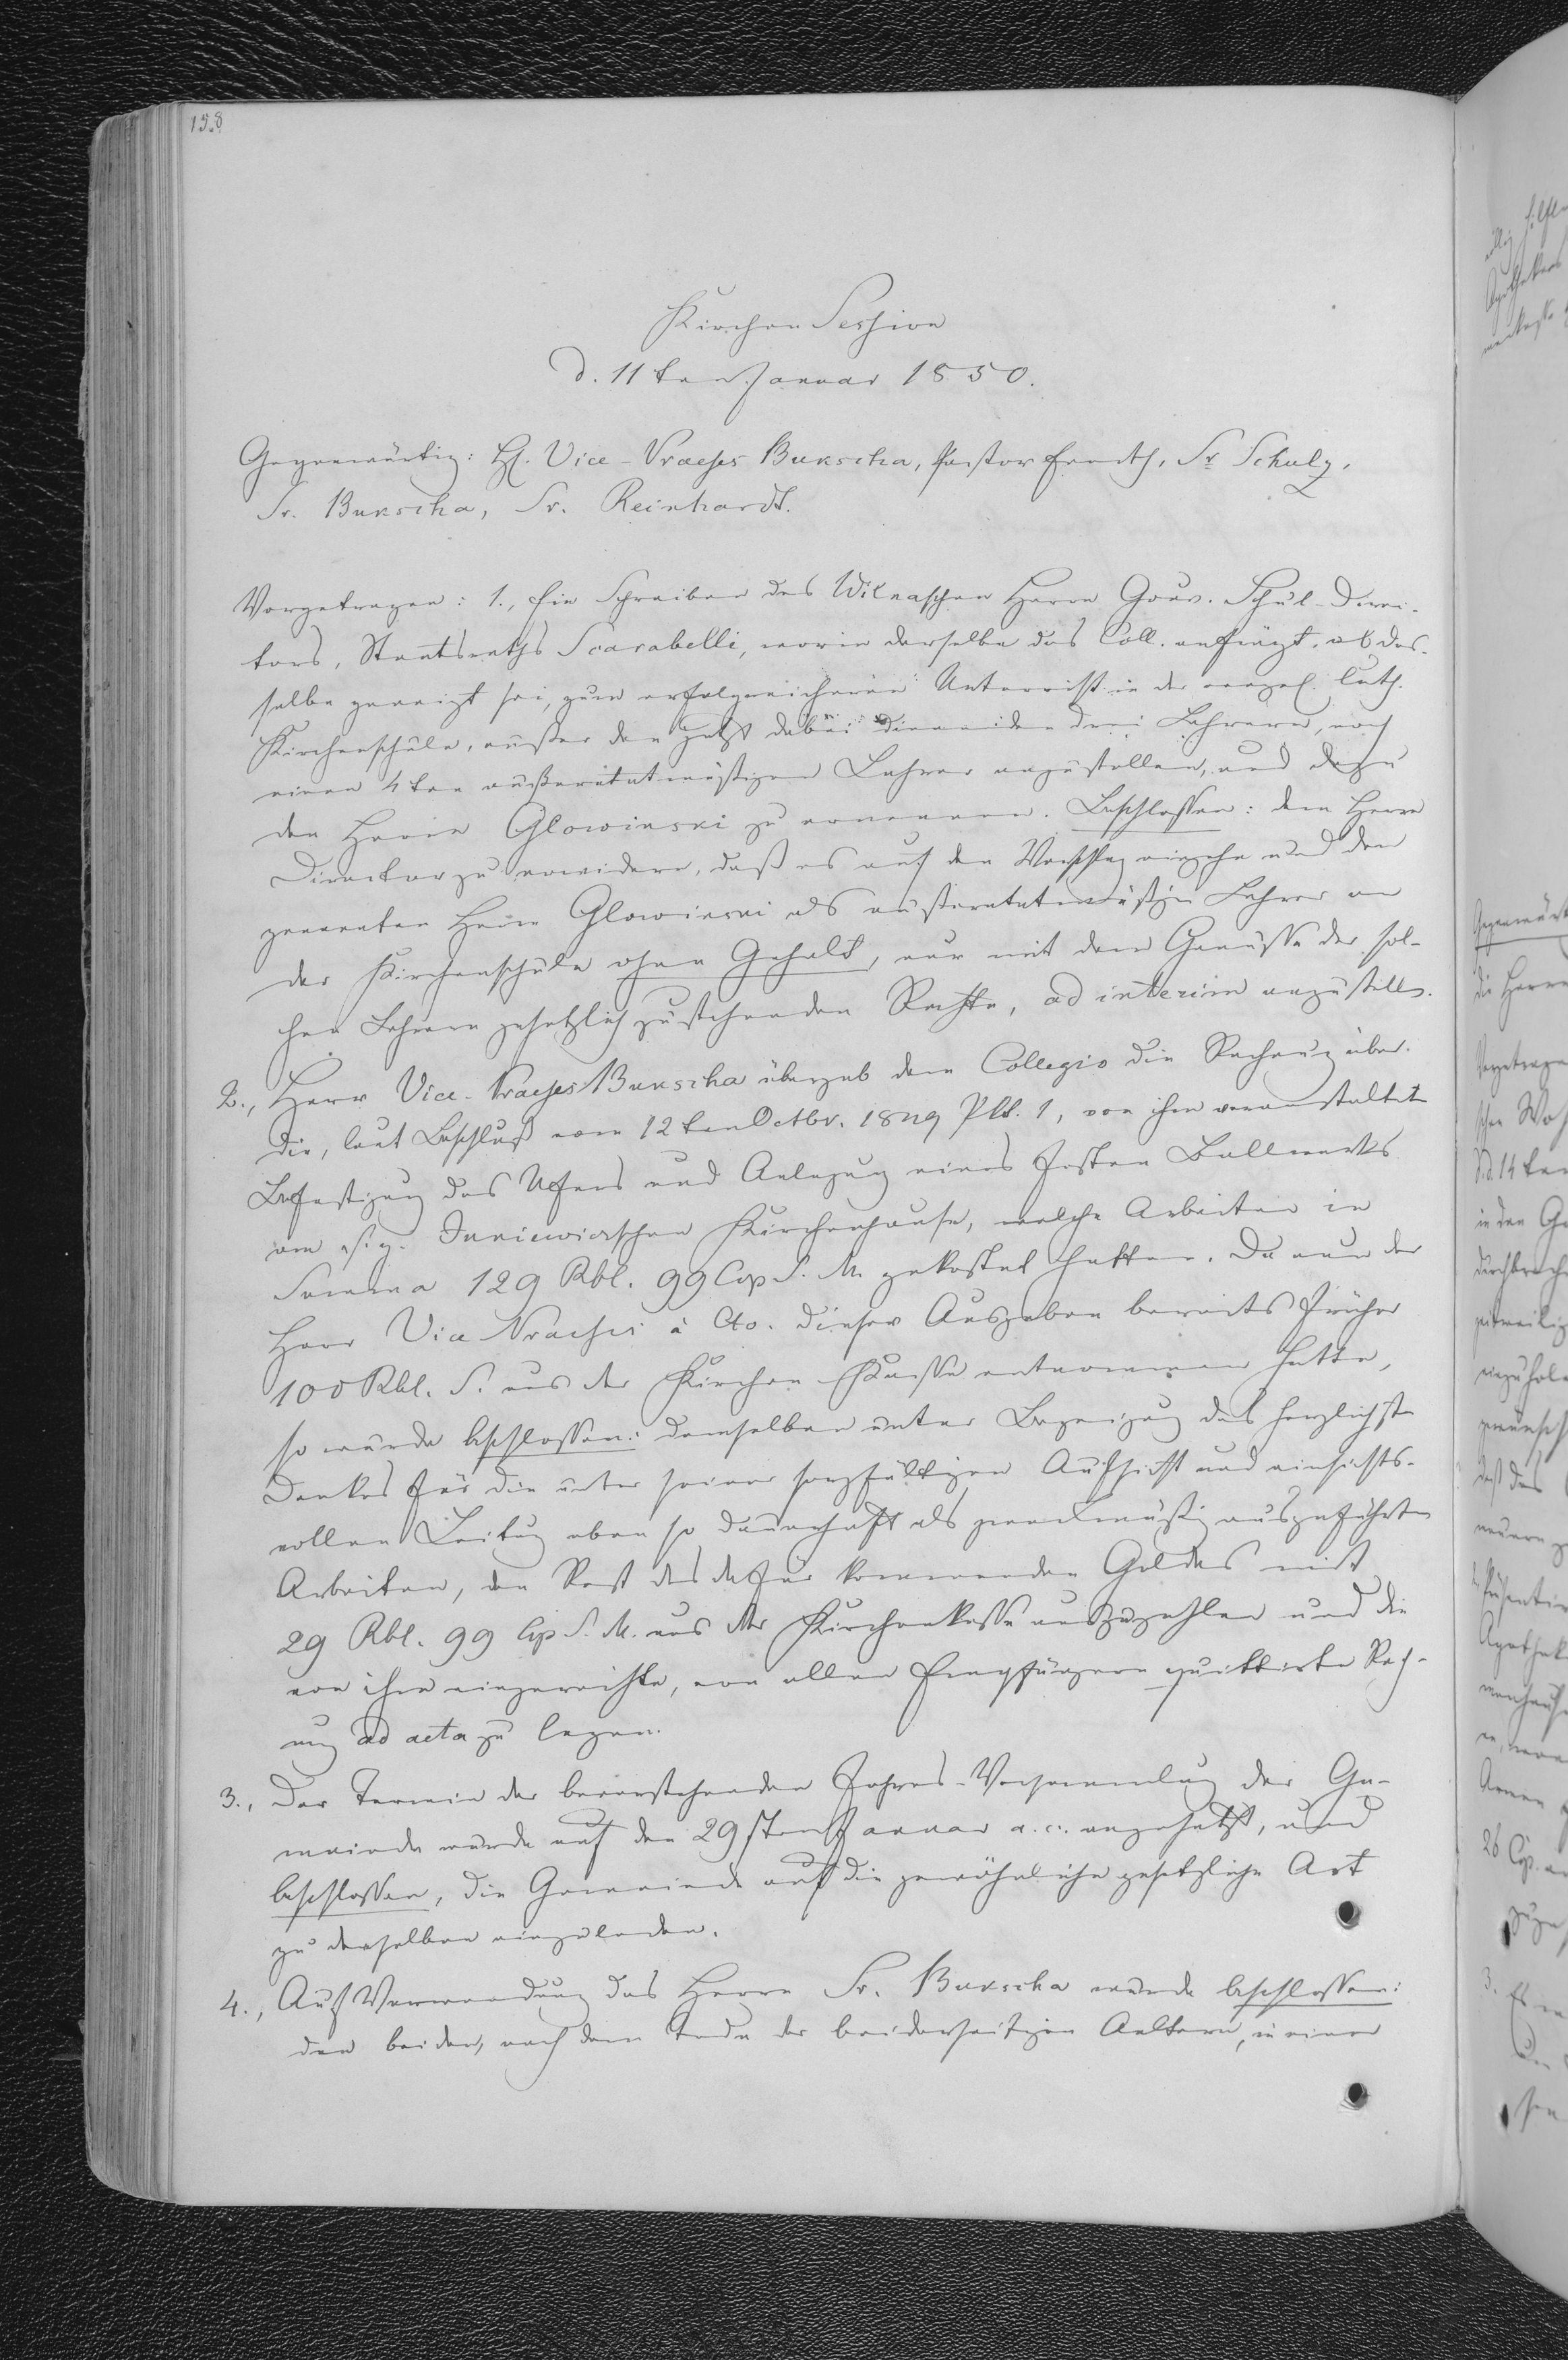 158
Kirchen Session
d. 11ten Januar 1850.
Gegenwärtig: H. Vice-Praeses Bukscha, Pastor Ernth, Sr Schulz,
Sr. Bukscha, Sr. Reinhardt.
Vorgetragen: 1., Ein Schreiben des Wilnaschen Herrn Gouv. Schul-Direc-
tors, Staatsraths Scarabelli, worin derselbe das Coll. anfrägt, ob das-
selbe geneigt sei, zum erfolgreicheren Unterricht in der evangel. luth.
Kirchenschule, außer den jetzt dabei dienenden drei Lehrern, noch
einen 4ten außeretatmäßigen Lehrer anzustellen, und dazu
den Herrn Glowinski zu ernennen. Beschlossen: dem Herrn
Director zu erwidern, daß es auf den Vorschlag eingehe und den
genannten Herrn Glowinski als außeretatmäßigen Lehrer an
der Kirchenschule ohne Gehalt, nur mit dem Genusse der sol-
chen Lehrern gesetzlich zustehenden Rechte, ad interim anzustellen.
2., Herr Vice-Praeses Bukscha übergab dem Collegio die Rechnung über
die, laut Beschluß vom 12ten Octbr. 1849 Pkt. 1, von ihm veranstaltete
Befestigung des Ufers und Anlegung eines festen Bollwerks
am s. g. Juniewiczschen Kirchenhause, welche Arbeiten in
Summa 129 Rbl. 99 Cop S. M. gekostet hatten. Da nun der
Herr Vice Praeses à Cto. dieser Ausgaben bereits früher
100 Rbl. S. aus der Kirchen Kasse entnommen hatte,
so wurde beschlossen: demselben unter Bezeigung des herzlichsten
Dankes für die unter seiner sorgfältigen Aufsicht und einsichts-
vollen Leitung eben so dauerhaft als zweckmäßig ausgeführten
Arbeiten, den Rest des dafür kommenden Geldes mit
29 Rbl. 99 Cop S. M. aus der Kirchenkasse auszuzahlen und die
von ihm eingereichte, von allen Empfängern quittirte Rech-
nung ad acta zu legen.
3., Der Termin der bevorstehenden Jahres-Versammlung der Ge-
meinde wurde auf den 29sten Januar a. c. angesetzt, und
beschlossen, die Gemeinde auf die gewöhnliche gesetzliche Art
zu derselben einzuladen.
4., Auf Verwendung des Herrn Sr. Bukscha wurde beschlossen:
den beiden, nach dem Tode der beiderseitigen Aeltern, in einer